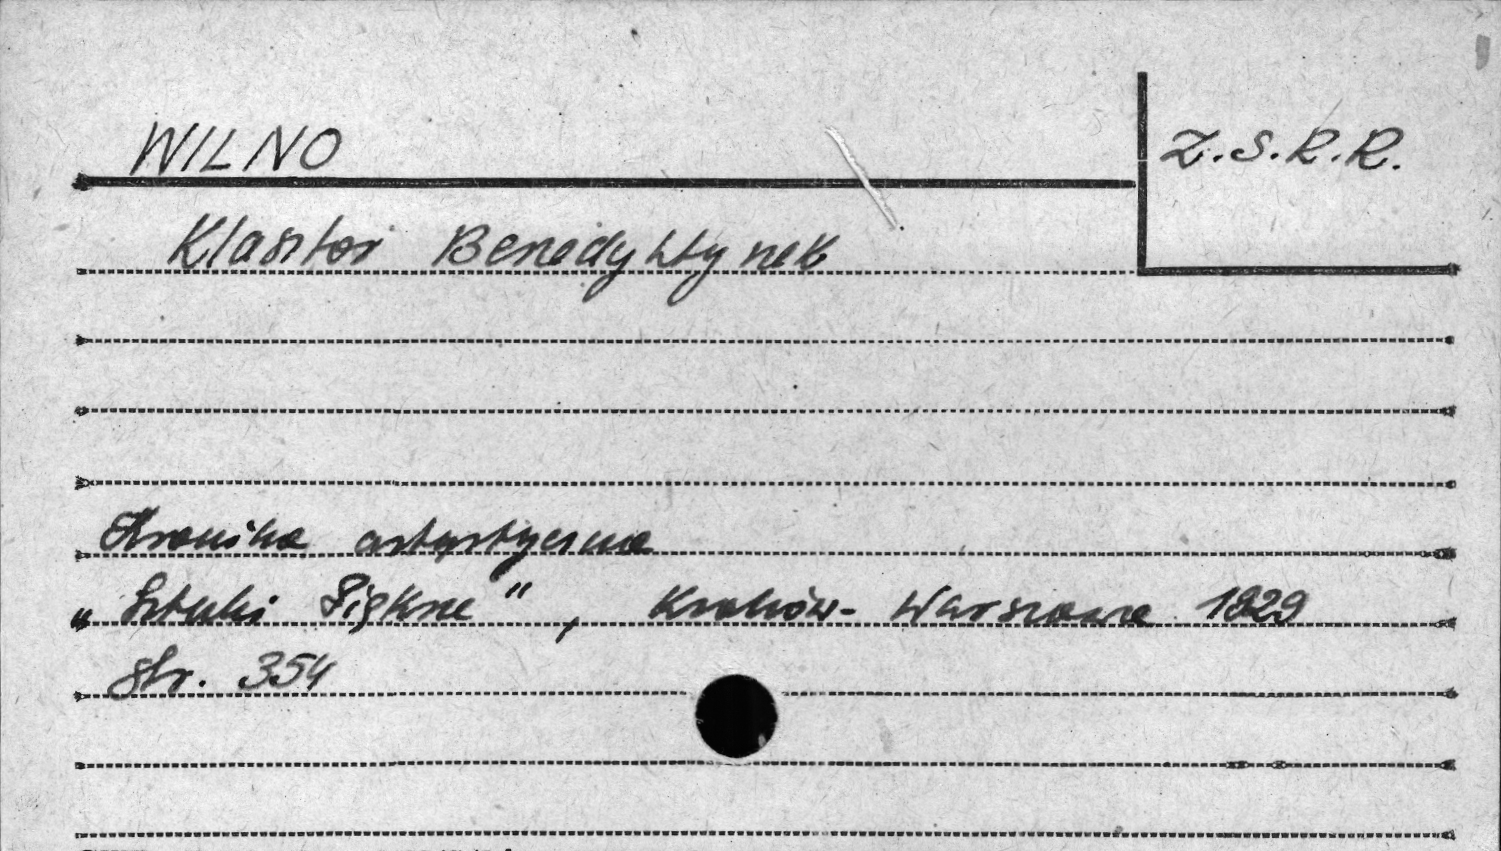 WILNO
Z.S.R.R.
Klasztor Benedyktynek
Kronika artystyczna
„Sztuki Piękne", Kraków-Warszawa 1929
str. 354